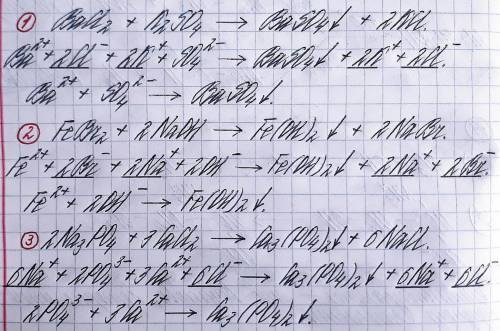 ① BaCl₂ + K₂SO₄ → BaSO₄↓ + 2KCl.
Ba²⁺ + 2Cl⁻ + 2K⁺ + SO₄²⁻ → BaSO₄↓ + 2K⁺ + 2Cl⁻
Ba²⁺ + SO₄²⁻ → BaSO₄↓.
② FeBr₂ + 2NaOH → Fe(OH)₂↓ + 2NaBr.
Fe²⁺ + 2Br⁻ + 2Na⁺ + 2OH⁻ → Fe(OH)₂↓ + 2Na⁺ + 2Br⁻.
Fe²⁺ + 2OH⁻ → Fe(OH)₂↓.
③ 2Na₃PO₄ + 3CaCl₂ → Ca₃(PO₄)₂↓ + 6NaCl.
6Na⁺ + 2PO₄³⁻ + 3Ca²⁺ + 6Cl⁻ → Ca₃(PO₄)₂↓ + 6Na⁺ + 6Cl⁻
2PO₄³⁻ + 3Ca²⁺ → Ca₃(PO₄)₂↓.